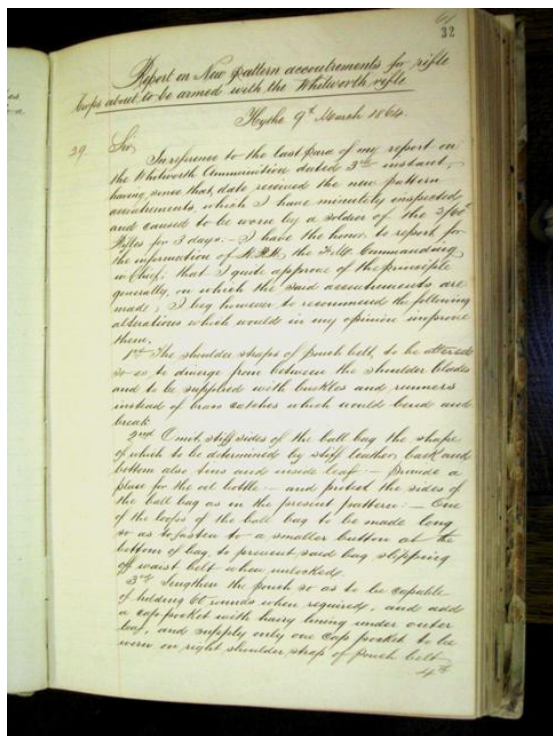 32
Report on New Pattern accoutrements for rifle
Corps about to be armed with the Whitworth rifle
Hythe 9th March 1864.
29 Sir
In reference to the last para of my report on
the Whitworth Ammunition dated 3rd instant,
having since that date received the new pattern
accoutrements, which I have minutely inspected
and caused to be worn by a soldier of the 3/60th
Rifles for 3 days. – I have the honor, to report, for
the information of H.R.H. the F.M. Commanding
in Chief, that I quite approve of the principle
generally, on which the said accoutrements are
made; I beg however to recommend the following
alterations which would in my opinion improve
them.
1st The shoulder straps of pouch belt, to be altered
so as to diverge from between the shoulder blades
and to be supplied with buckles and runners
instead of brass catches which would bend and
break
2nd Omit, stiff sides of the ball bag the shape
of which to be determined by stiff leather, back and
bottom also tins and inside leaf: – Provide a
place for the oil bottle – and protect the sides of
the ball bag as in the present pattern: – One
of the loops of the ball bag to be made long
so as to fasten to a smaller button at the
bottom of bag, to prevent said bag slipping
off waist belt when unlocked.
3rd Lengthen the pouch so as to be capable
of holding 60 rounds when required, and add
a cap pocket with hairy lining under outer
leaf, and supply only one cap pocket to be
worn on right shoulder strap of pouch belt
4th